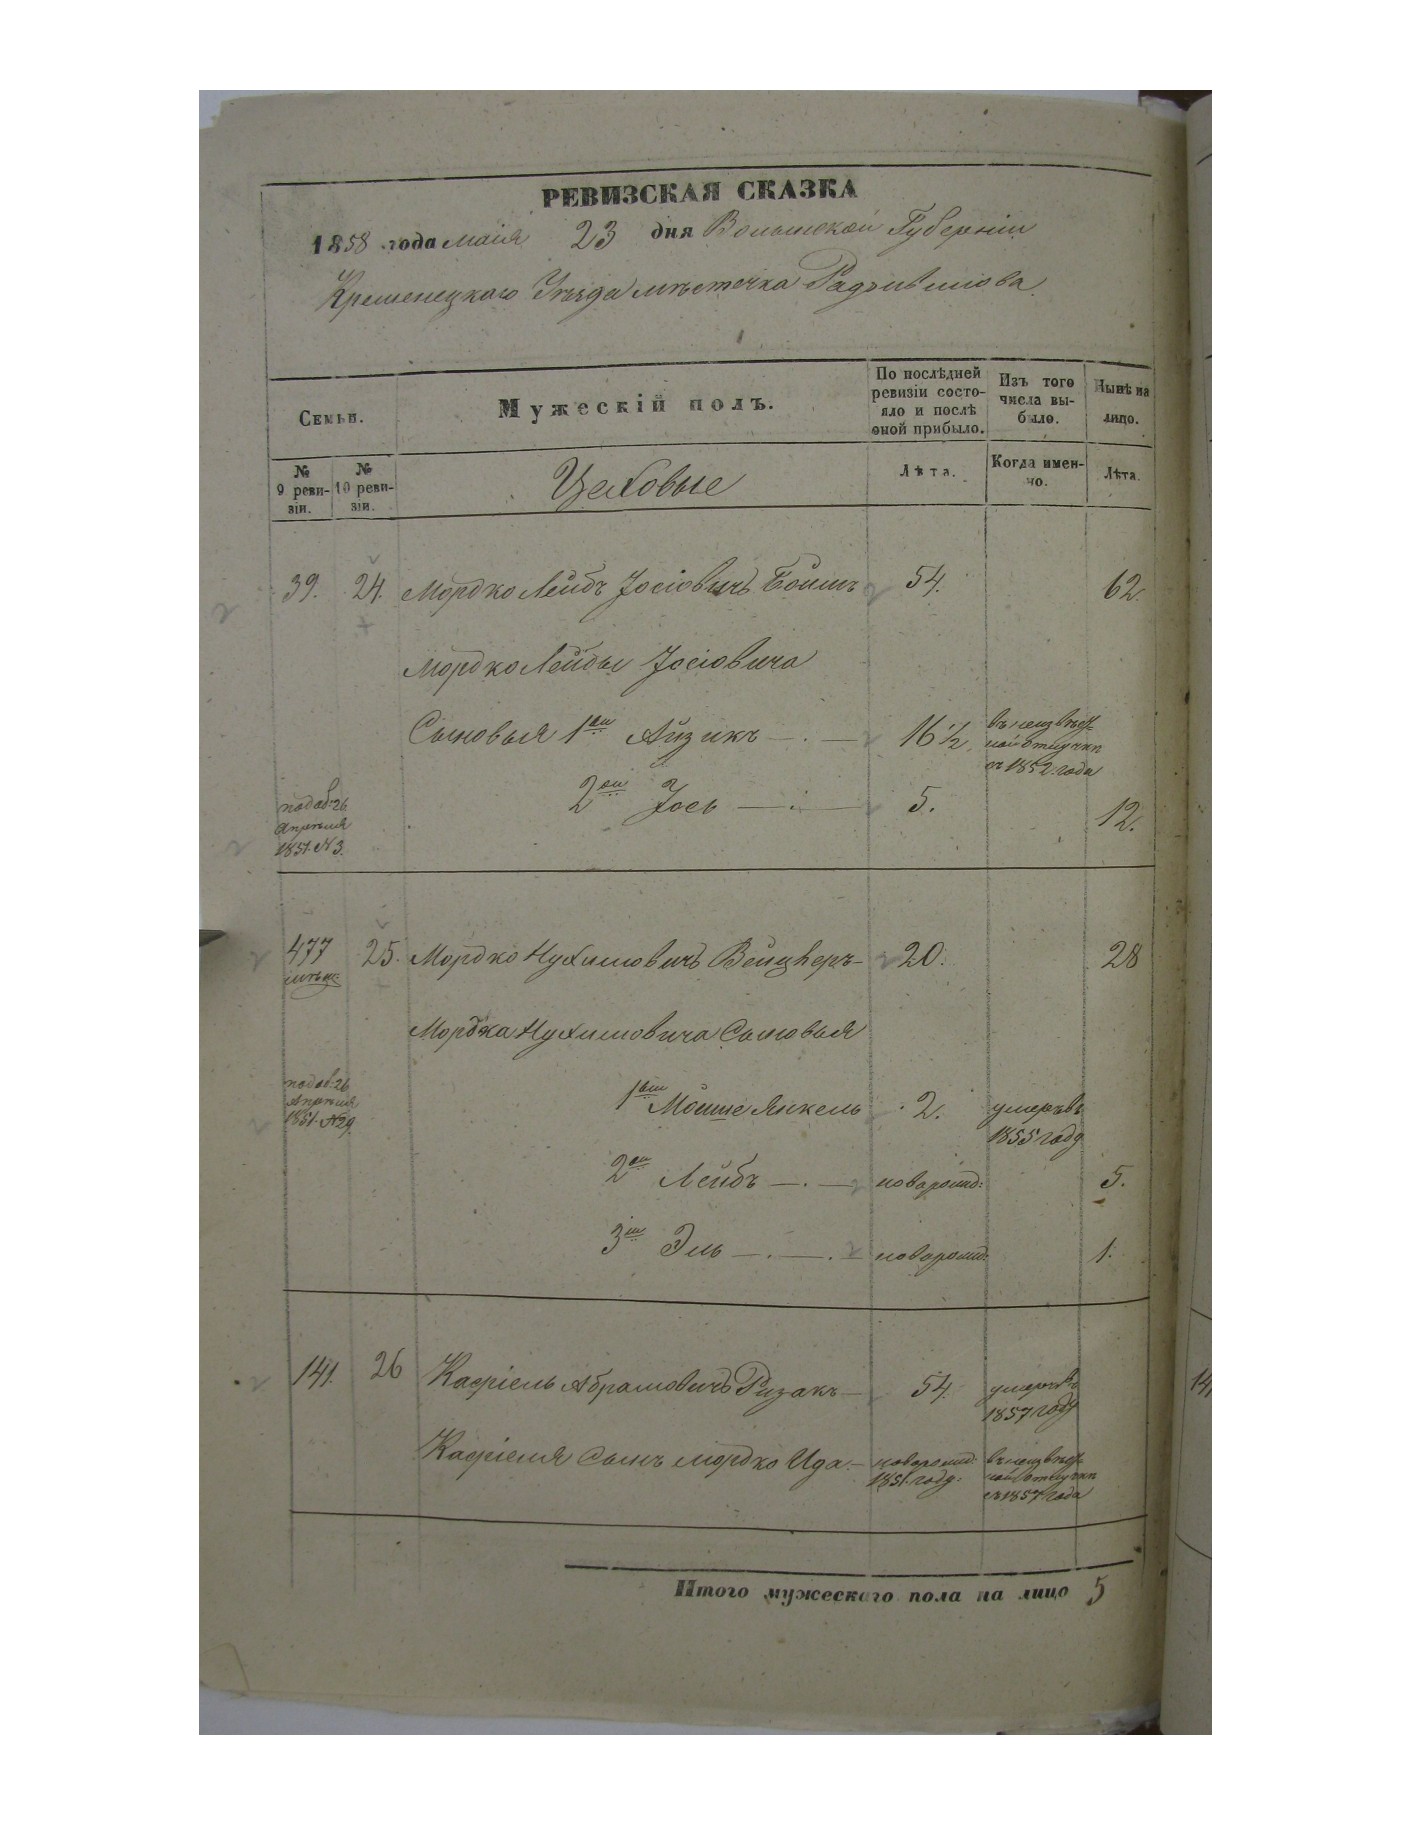 РЕВИЗСКАЯ СКАЗКА
1858 года маія 23 дня Волынской Губерніи
Кременецкаго Уѣзда мѣстечка Радзивилова
Семьи.
Мужескій полъ.
По послѣдней ревизіи состо-
яло и послѣ
оной прибыло.
Изъ того
числа вы-
было.
Нынѣ на
лицо.
№
9 реви-
зіи.
№
10 реви-
зіи.
Цеховые
Лѣта.
Когда имен-
но.
Лѣта.
39. 24. Мордко Лейбъ Іосіовичъ 54. 62.
Мордко Лейбы Іосіовича
Сыновья 1ый Айзикъ — . — 16½ въ неизвѣст-
ной отлучки
съ 1852 года
2ой Іось — . — 5. 12.
подав: 26
Апрѣля
1851 №3.
477
мѣщ:
25. Мордко Нухимовичъ Вейцнеръ — 20. 28
Мордка Нухимовича Сыновья
подав: 26
Апрѣля
1851. №29
1ый Мошше Янкель 2. умеръ въ
1855 году
2ой Лейбъ — . — новорожд: 5.
3ій Эль — . — . — новорожд: 1.
141. 26 Кафріель Абрамовичъ Ризакъ — 54. умеръ въ
1857 году
Кафріеля Сынъ Мордко Ида — новорожд:
1851. году:
въ неизвѣст-
ной отлучки
съ 1857 года
Итого мужескаго пола на лицо 5